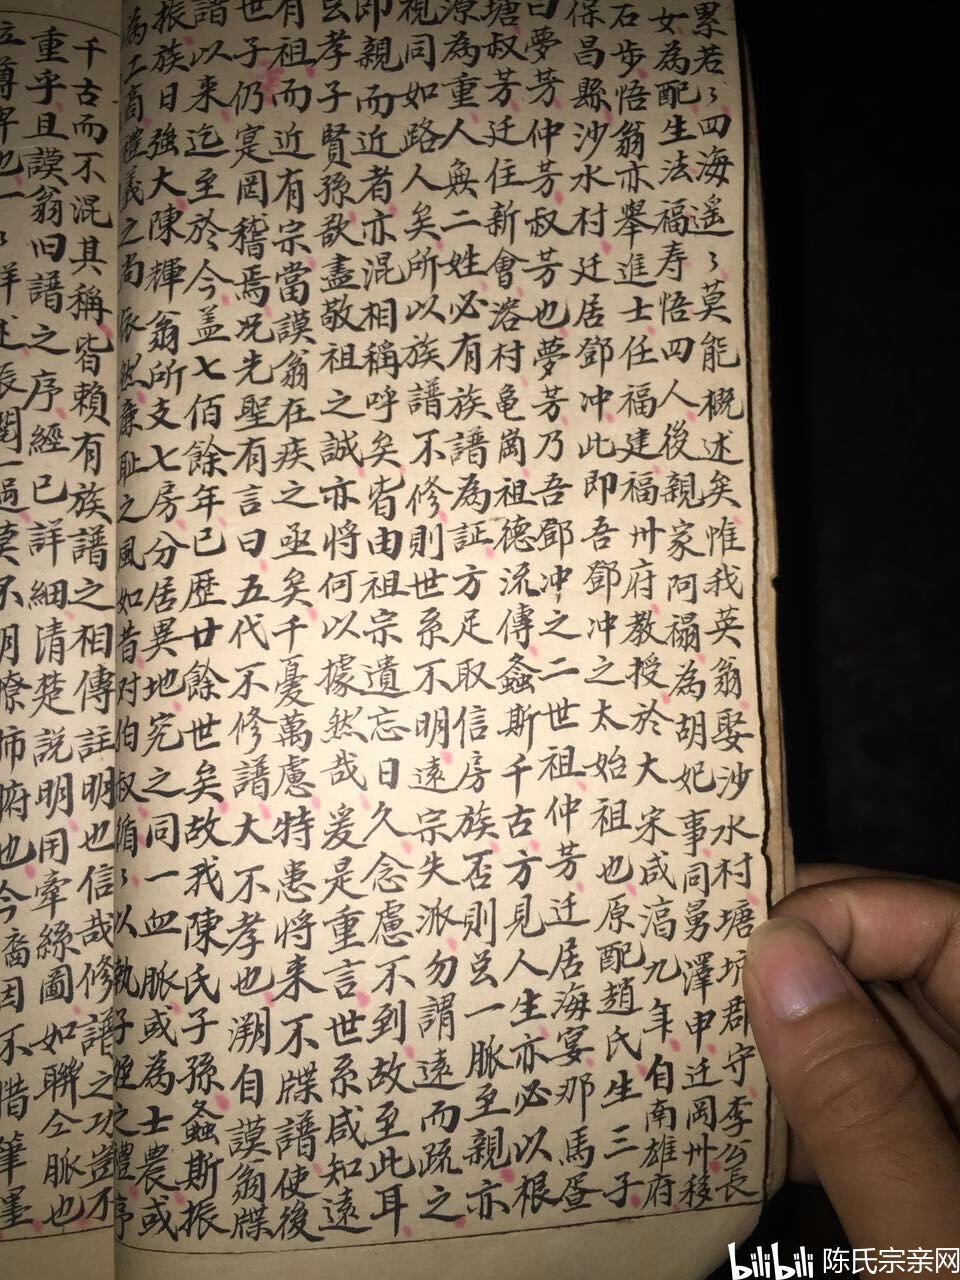 累若〻四海遥〻莫能概述矣惟我英翁娶沙水村塘坑郡守李公長
女為配生法福寿悟四人後親家阿禢為胡妃事同舅澤申迁岡州移
石步悟翁亦舉進士任福建福州府教授於大宋咸淳九年自南雄府
保昌縣沙水村迁居鄧冲此即吾鄧冲之太始祖也原配趙氏生三子
曰夢芳仲芳叔芳也夢芳乃吾鄧冲之二世祖仲芳迁居海宴那馬蛋
塘叔芳迁住新會滘村亀崗祖德流傳螽斯千古方見人生亦必以根
源為重人無二姓必有族譜為証方足取信房族否則吴一脈至親亦
視同如路人矣所以族譜不修則世系不明遠宗失派勿謂遠而疏之
即親而近者亦混相稱呼矣皆由祖宗遺忘日久念慮不到故至此耳
玄孝子賢孫欲盡敬祖之誠亦將何以據然哉爰是重言世系咸知遠
有祖而近有宗當謨翁在疾之亟矣千憂萬慮特患將来不牒譜使後
世子仍寔罔稽焉况先聖有言曰五代不修譜大不孝也溯自謨翁牒
譜以来迄至於今盖七佰餘年已歷廿餘世矣故我陳氏子孫螽斯振
振族日強大陳輝翁所支七房分居異地究之同一血脈或為士農或
為工商禮義之尚依然廉耻之風如昔对伯叔循〻以執子姪之體序
千古而不混其稱皆賴有族譜之相傳註明也信哉修譜之功豈不
重乎且謨翁旧譜之序經已詳細清楚說明用牽絲圖如聯今脈也
尊卑也一〻詳述展閱一過莫不明瞭师腑也今裔因不惜筆墨
bilibili 陈氏宗亲网